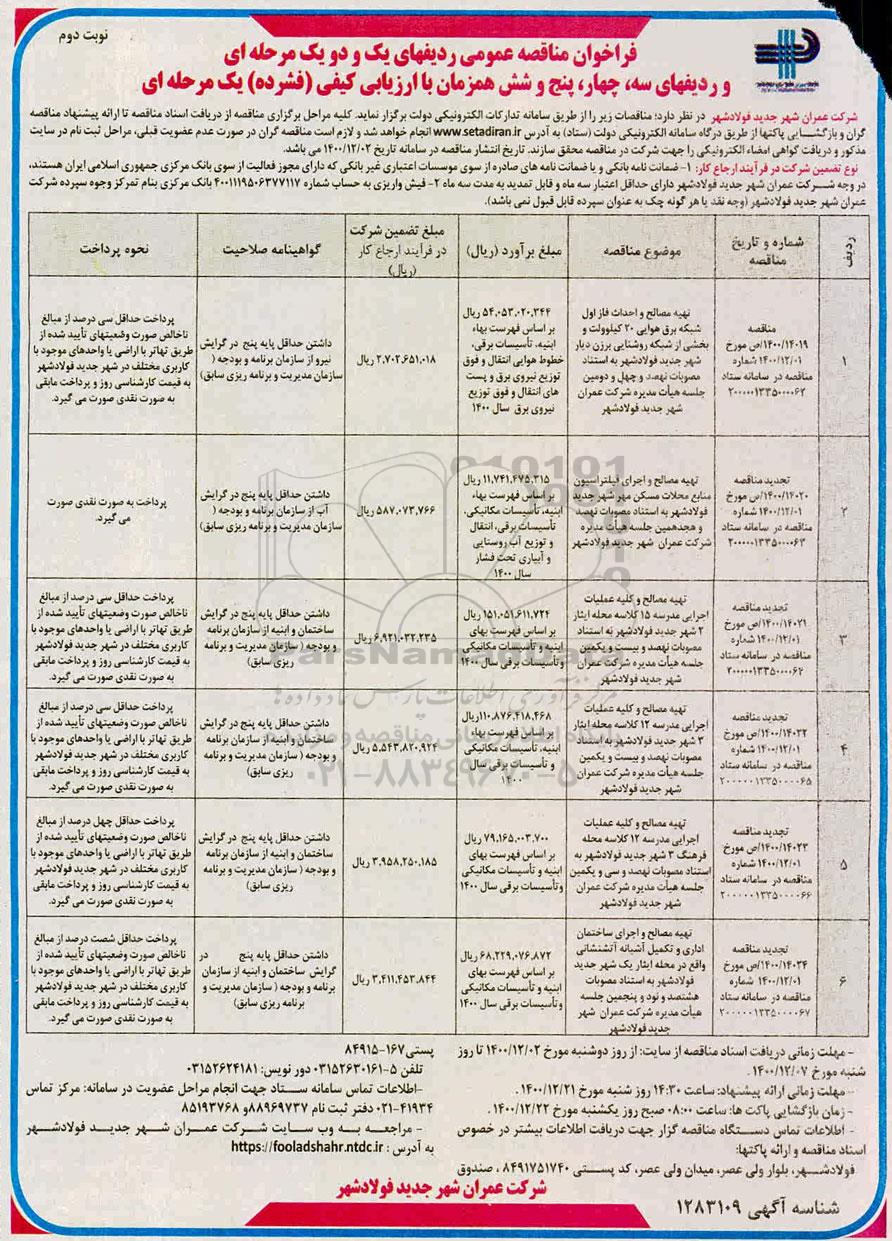 نوبت دوم
فراخوان مناقصه عمومی ردیفهای یک و دو یک مرحله ای
و ردیفهای سه، چهار، پنج و شش همزمان با ارزیابی کیفی (فشرده) یک مرحله ای
شرکت عمران شهر جدید فولادشهر در نظر دارد؛ مناقصات زیر را از طریق سامانه تدارکات الکترونیکی دولت برگزار نماید. کلیه مراحل برگزاری مناقصه از دریافت اسناد مناقصه تا ارائه پیشنهاد مناقصه
گران و بازگشـــایی پاکتها از طریق درگاه سامانه الکترونیکی دولت (ستاد) به آدرس www.setadiran.ir انجام خواهد شد و لازم است مناقصه گران در صورت عدم عضویت قبلی، مراحل ثبت نام در سایت
مذکور و دریافت گواهی امضاء الکترونیکی را جهت شرکت در مناقصه محقق سازند. تاریخ انتشار مناقصه در سامانه تاریخ ۱۴۰۰/۱۲/۰۲ می باشد.
نوع تضمین شرکت در فرآیند ارجاع کار: ۱- ضمانت نامه بانکی و یا ضمانت نامه های صادره از سوی موسسات اعتباری غیر بانکی که دارای مجوز فعالیت از سوی بانک مرکزی جمهوری اسلامی ایران هستند،
در وجه شـــرکت عمران شهر جدید فولادشهر دارای حداقل اعتبار سه ماه و قابل تمدید به مدت سه ماه ۲- فیش واریزی به حساب شماره ۴۰۰۱۱۱۹۵۰۶۳۷۷۱۱۷ بانک مرکزی بنام تمرکز وجوه سپرده شرکت
عمران شهر جدید فولادشهر (وجه نقد یا هر گونه چک به عنوان سپرده قابل قبول نمی باشد).
ردیف
شماره و تاریخ
مناقصه
موضوع مناقصه
مبلغ برآورد (ریال)
مبلغ تضمین شرکت
در فرآیند ارجاع کار
(ریال)
گواهینامه صلاحیت
نحوه پرداخت
۱
مناقصه
۱۴۰۰/۱۴۰۱۹/ص مورخ
۱۴۰۰/۱۲/۰۱ شماره
مناقصه در سامانه ستاد
۲۰۰۰۰۰۱۳۳۵۰۰۰۰۶۲
تهیه مصالح و احداث فاز اول
شبکه برق هوایی ۲۰ کیلوولت و
بخشی از شبکه روشنایی برزن دیار
شهر جدید فولادشهر به استناد
مصوبات نهصد و چهل و دومین
جلسه هیأت مدیره شرکت عمران
شهر جدید فولادشهر
۵۴,۰۵۳,۰۲۰,۳۴۴ ریال
بر اساس فهرست بهاء
ابنیه، تأسیسات برقی،
خطوط هوایی انتقال و فوق
توزیع نیروی برق و پست
های انتقال و فوق توزیع
نیروی برق سال ۱۴۰۰
۲,۷۰۲,۶۵۱,۰۱۸ ریال
داشتن حداقل پایه پنج در گرایش
نیرو از سازمان برنامه و بودجه (
سازمان مدیریت و برنامه ریزی سابق)
پرداخت حداقل سی درصد از مبالغ
ناخالص صورت وضعیتهای تأیید شده از
طریق تهاتر با اراضی یا واحدهای موجود با
کاربری مختلف در شهر جدید فولادشهر
به قیمت کارشناسی روز و پرداخت مابقی
به صورت نقدی صورت می گیرد.
۲
تجدید مناقصه
۱۴۰۰/۱۴۰۲۰/ص مورخ
۱۴۰۰/۱۲/۰۱ شماره
مناقصه در سامانه ستاد
۲۰۰۰۰۰۱۳۳۵۰۰۰۰۶۳
تهیه مصالح و اجرای فیلتراسیون
منابع محلات مسکن مهر شهر جدید
فولادشهر به استناد مصوبات نهصد
و هجدهمین جلسه هیأت مدیره
شرکت عمران شهر جدید فولادشهر
۱۱,۷۴۱,۴۷۵,۳۱۵ ریال
بر اساس فهرست بهاء
ابنیه، تأسیسات مکانیکی،
تأسیسات برقی، انتقال
و توزیع آب روستایی
و آبیاری تحت فشار
سال ۱۴۰۰
۵۸۷,۰۷۳,۷۶۶ ریال
داشتن حداقل پایه پنج در گرایش
آب از سازمان برنامه و بودجه (
سازمان مدیریت و برنامه ریزی سابق)
پرداخت به صورت نقدی صورت
می گیرد.
۳
تجدید مناقصه
۱۴۰۰/۱۴۰۲۱/ص مورخ
۱۴۰۰/۱۲/۰۱ شماره
مناقصه در سامانه ستاد
۲۰۰۰۰۰۱۳۳۵۰۰۰۰۶۴
تهیه مصالح و کلیه عملیات
اجرایی مدرسه ۱۵ کلاسه محله ایثار
۲ شهر جدید فولادشهر به استناد
مصوبات نهصد و بیست و یکمین
جلسه هیأت مدیره شرکت عمران
شهر جدید فولادشهر
۱۵۱,۰۵۱,۶۱۱,۷۲۴ ریال
بر اساس فهرست بهای
ابنیه و تأسیسات مکانیکی
و تأسیسات برقی سال ۱۴۰۰
۶,۹۲۱,۰۳۲,۲۳۵ ریال
داشتن حداقل پایه پنج در گرایش
ساختمان و ابنیه از سازمان برنامه
و بودجه ( سازمان مدیریت و برنامه
ریزی سابق)
پرداخت حداقل سی درصد از مبالغ
ناخالص صورت وضعیتهای تأیید شده از
طریق تهاتر با اراضی یا واحدهای موجود با
کاربری مختلف در شهر جدید فولادشهر
به قیمت کارشناسی روز و پرداخت مابقی
به صورت نقدی صورت می گیرد.
۴
تجدید مناقصه
۱۴۰۰/۱۴۰۲۲/ص مورخ
۱۴۰۰/۱۲/۰۱ شماره
مناقصه در سامانه ستاد
۲۰۰۰۰۰۱۳۳۵۰۰۰۰۶۵
تهیه مصالح و کلیه عملیات
اجرایی مدرسه ۱۲ کلاسه محله ایثار
۳ شهر جدید فولادشهر به استناد
مصوبات نهصد و بیست و یکمین
جلسه هیأت مدیره شرکت عمران
شهر جدید فولادشهر
۱۱۰,۸۷۶,۴۱۸,۴۶۸ ریال
بر اساس فهرست بهاء
ابنیه، تأسیسات مکانیکی
و تأسیسات برقی سال
۱۴۰۰
۵,۵۴۳,۸۲۰,۹۲۴ ریال
داشتن حداقل پایه پنج در گرایش
ساختمان و ابنیه از سازمان برنامه
و بودجه ( سازمان مدیریت و برنامه
ریزی سابق)
پرداخت حداقل سی درصد از مبالغ
ناخالص صورت وضعیتهای تأیید شده از
طریق تهاتر با اراضی یا واحدهای موجود با
کاربری مختلف در شهر جدید فولادشهر
به قیمت کارشناسی روز و پرداخت مابقی
به صورت نقدی صورت می گیرد.
۵
تجدید مناقصه
۱۴۰۰/۱۴۰۲۳/ص مورخ
۱۴۰۰/۱۲/۰۱ شماره
مناقصه در سامانه ستاد
۲۰۰۰۰۰۱۳۳۵۰۰۰۰۶۶
تهیه مصالح و کلیه عملیات
اجرایی مدرسه ۱۲ کلاسه محله
فرهنگ ۳ شهر جدید فولادشهر به
استناد مصوبات نهصد و سی و یکمین
جلسه هیأت مدیره شرکت عمران
شهر جدید فولادشهر
۷۹,۱۶۵,۰۰۳,۷۰۰ ریال
بر اساس فهرست بهای
ابنیه و تأسیسات مکانیکی
و تأسیسات برقی سال ۱۴۰۰
۳,۹۵۸,۲۵۰,۱۸۵ ریال
داشتن حداقل پایه پنج در گرایش
ساختمان و ابنیه از سازمان برنامه
و بودجه ( سازمان مدیریت و برنامه
ریزی سابق)
پرداخت حداقل چهل درصد از مبالغ
ناخالص صورت وضعیتهای تأیید شده از
طریق تهاتر با اراضی یا واحدهای موجود با
کاربری مختلف در شهر جدید فولادشهر
به قیمت کارشناسی روز و پرداخت مابقی
به صورت نقدی صورت می گیرد.
۶
تجدید مناقصه
۱۴۰۰/۱۴۰۲۴/ص مورخ
۱۴۰۰/۱۲/۰۱ شماره
مناقصه در سامانه ستاد
۲۰۰۰۰۰۱۳۳۵۰۰۰۰۶۷
تهیه مصالح و اجرای ساختمان
اداری و تکمیل آشیانه آتشنشانی
واقع در محله ایثار یک شهر جدید
فولادشهر به استناد مصوبات
هشتصد و نود و پنجمین جلسه
هیأت مدیره شرکت عمران شهر
جدید فولادشهر
۶۸,۲۲۹,۰۷۶,۸۷۲ ریال
بر اساس فهرست بهای
ابنیه و تأسیسات مکانیکی
و تأسیسات برقی سال ۱۴۰۰
۳,۴۱۱,۴۵۳,۸۴۴ ریال
داشتن حداقل پایه پنج در
گرایش ساختمان و ابنیه از سازمان
برنامه و بودجه ( سازمان مدیریت و
برنامه ریزی سابق)
پرداخت حداقل شصت درصد از مبالغ
ناخالص صورت وضعیتهای تأیید شده از
طریق تهاتر با اراضی یا واحدهای موجود با
کاربری مختلف در شهر جدید فولادشهر
به قیمت کارشناسی روز و پرداخت مابقی
به صورت نقدی صورت می گیرد.
- مهلت زمانی دریافت اسناد مناقصه از سایت: از روز دوشنبه مورخ ۱۴۰۰/۱۲/۰۲ تا روز
شنبه مورخ ۱۴۰۰/۱۲/۰۷ .
- مهلت زمانی ارائه پیشنهاد: ساعت ۱۴:۳۰ روز شنبه مورخ ۱۴۰۰/۱۲/۲۱ .
- زمان بازگشایی پاکت ها: ساعت ۰۸:۰۰ صبح روز یکشنبه مورخ ۱۴۰۰/۱۲/۲۲ .
- اطلاعات تماس دســـتگاه مناقصه گزار جهت دریافت اطلاعات بیشتر در خصوص
اسناد مناقصه و ارائه پاکتها:
فولادشـــهر، بلوار ولی عصر، میدان ولی عصر، کد پســـتی ۸۴۹۱۷۵۱۷۴۰ ، صندوق
پستی ۱۶۷-۸۴۹۱۵
تلفن ۵-۰۳۱۵۲۶۳۰۱۶۱ دور نویس: ۰۳۱۵۲۶۲۴۱۸۱
-اطلاعات تماس سامانه ســـتاد جهت انجام مراحل عضویت در سامانه: مرکز تماس
۴۱۹۳۴-۰۲۱ دفتر ثبت نام ۸۸۹۶۹۷۳۷و ۸۵۱۹۳۷۶۸
- مراجعـــه به وب سایت شـــرکت عمـــران شـــهر جدیـــد فولادشـــهر
به آدرس : https://fooladshahr.ntdc.ir
شرکت عمران شهر جدید فولادشهر
شناسه آگهی ۱۲۸۳۱۰۹